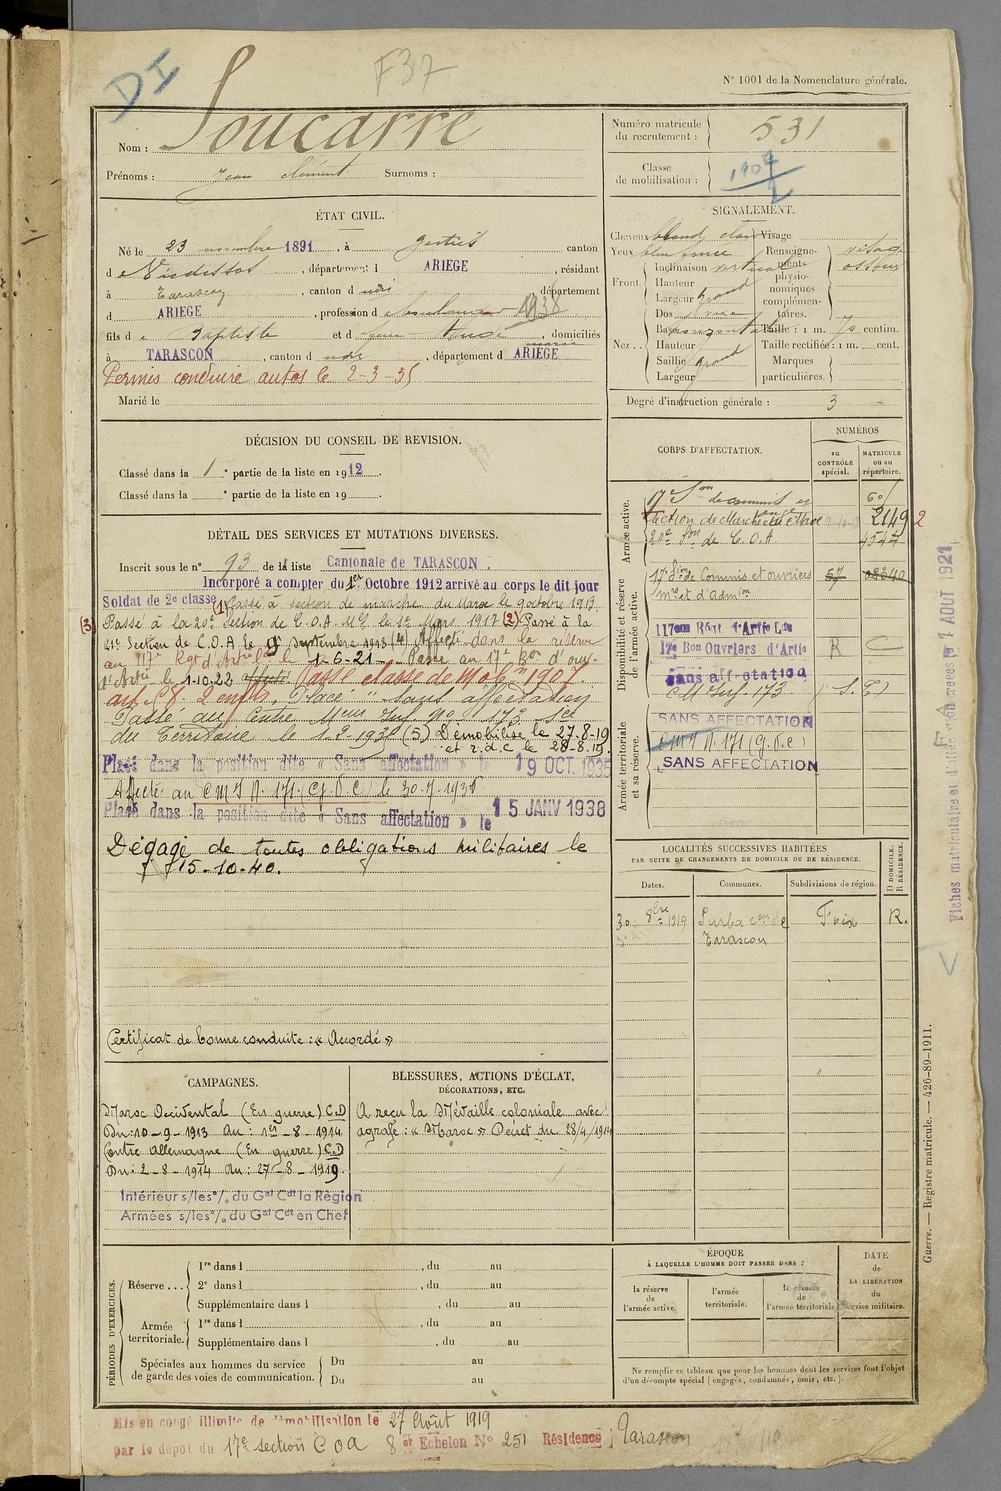 DI
F37
N° 1001 de la Nomenclature générale.
Nom : Soucarre
Prénoms : Jean Clément Surnoms :
Numéro matricule du recrutement : 531
Classe de mobilisation : 1907
ÉTAT CIVIL.
Né le 23 novembre 1891, à Gestiès canton
d Vicdessos, département d ARIEGE, résidant
à Tarascon, canton d udi, département
d ARIEGE, profession d 1938
fils d e Baptiste et d, domiciliés
à TARASCON, canton d udi, département d ARIEGE
Permis conduire autos le 2-3-35
Marié le
SIGNALEMENT.
Cheveux blond clair Visage
Yeux bleu
Front. Inclinaison vertical
Hauteur
Largeur grand
Nez.. Dos
Base horizontale
Hauteur
Saillie grand
Largeur
Renseignements physionomiques complémentaires. visage osseux
Taille : 1 m. 70 centim.
Taille rectifiée : 1 m. cent.
Marques particulières.
Degré d'instruction générale : 3
DÉCISION DU CONSEIL DE REVISION.
Classé dans la 1e partie de la liste en 1912.
Classé dans la e partie de la liste en 19
DÉTAIL DES SERVICES ET MUTATIONS DIVERSES.
Inscrit sous le n° 93 de la liste Cantonale de TARASCON.
Incorporé a compter du 1er Octobre 1912 arrivé au corps le dit jour
Soldat de 2e classe (1) Passé à section de marche du Maroc le 9 octobre 1913.
(3) Passé à la 20e Section de C.O.A. Me le 1er Mars 1917 (2) Passé à la
Section de C.O.A. le septembre 1918 (4) Affecté dans la réserve
au 117e Rgt d'Artil le 1-6-21 Passé au 17e Bon d'ouv-
d'Artie le 1-10-22 Passé classe de Mobon 1907
art. 58. 2 enfts. Placé "sans affectation"
Passé au Centre Mcum Inf. no 173 Sce
du Territoire le 1-2-1930 (5) Démobilisé le 27.8-19
et r.d.c le 28-8.19.
Placé dans la position dite « Sans affectation » le 19 OCT. 1935
Affecté au CMI N. 171 (G.V.C) le 30-7-1936
Placé dans la position dite « Sans affectation » le 15 JANV 1938
Dégagé de toutes obligations militaires le
15-10-40.
Certificat de bonne conduite : « Accordé »
CORPS D'AFFECTATION.
NUMÉROS
au CONTRÔLE spécial.
MATRICULE ou au répertoire.
Armée active.
17e Son de commis et 60
Section de Marche du Maroc 2149 2
20e Son de C.O.A 4544
Disponibilité et réserve de l'armée active.
17e Son de Commis et ouvriers 57 08340
mre et d'admion
117em Régt d'Artie Lde
17e Bon Ouvriers d'Artie R C
Sans affectation
CM Inf. 173 (S. T)
Armée territoriale et sa réserve.
SANS AFFECTATION
CMI N. 171 (G.V.C)
SANS AFFECTATION
LOCALITÉS SUCCESSIVES HABITÉES
PAR SUITE DE CHANGEMENTS DE DOMICILE OU DE RÉSIDENCE.
Dates. Communes. Subdivisions de région. D DOMICILE. R RÉSIDENCE.
30 8bre 1919 Surba con de Tarascon Foix R.
Fiches matriculaire et d'affectation créées le 7 AOUT 1921
CAMPAGNES.
Maroc Occidental (En guerre) C.D
Du : 10-9-1913 Au : 1er-8-1914
Contre Allemagne (En guerre) C.D
Du : 2-8-1914 Au : 27-8-1919.
Intérieur s/les % du Gal Cdt la Région
Armées s/les % du Gal Cdt en Chef
BLESSURES, ACTIONS D'ÉCLAT,
DÉCORATIONS, ETC.
A reçu la Médaille coloniale avec
agrafe : « Maroc » Décret du 28/4/1914
PÉRIODES D'EXERCICES.
Réserve...
1re dans l, du au
2e dans l, du au
Supplémentaire dans l, du au
Armée territoriale.
1re dans l, du au
Supplémentaire dans l, du au
Spéciales aux hommes du service de garde des voies de communication.
Du au
Du au
ÉPOQUE
À LAQUELLE L'HOMME DOIT PASSER DANS :
la réserve de l'armée active.
l'armée territoriale.
la réserve de l'armée territoriale.
DATE de LA LIBÉRATION du service militaire.
Ne remplir ce tableau que pour les hommes dont les services font l'objet
d'un décompte spécial (engagés, condamnés, omis, etc.).
Guerre. — Registre matricule. — 426-89-1911.
Mis en congé illimité de démobilisation le 27 Août 1919
par le dépôt du 17e section COA 8 er Echelon N° 251 Résidence Tarascon